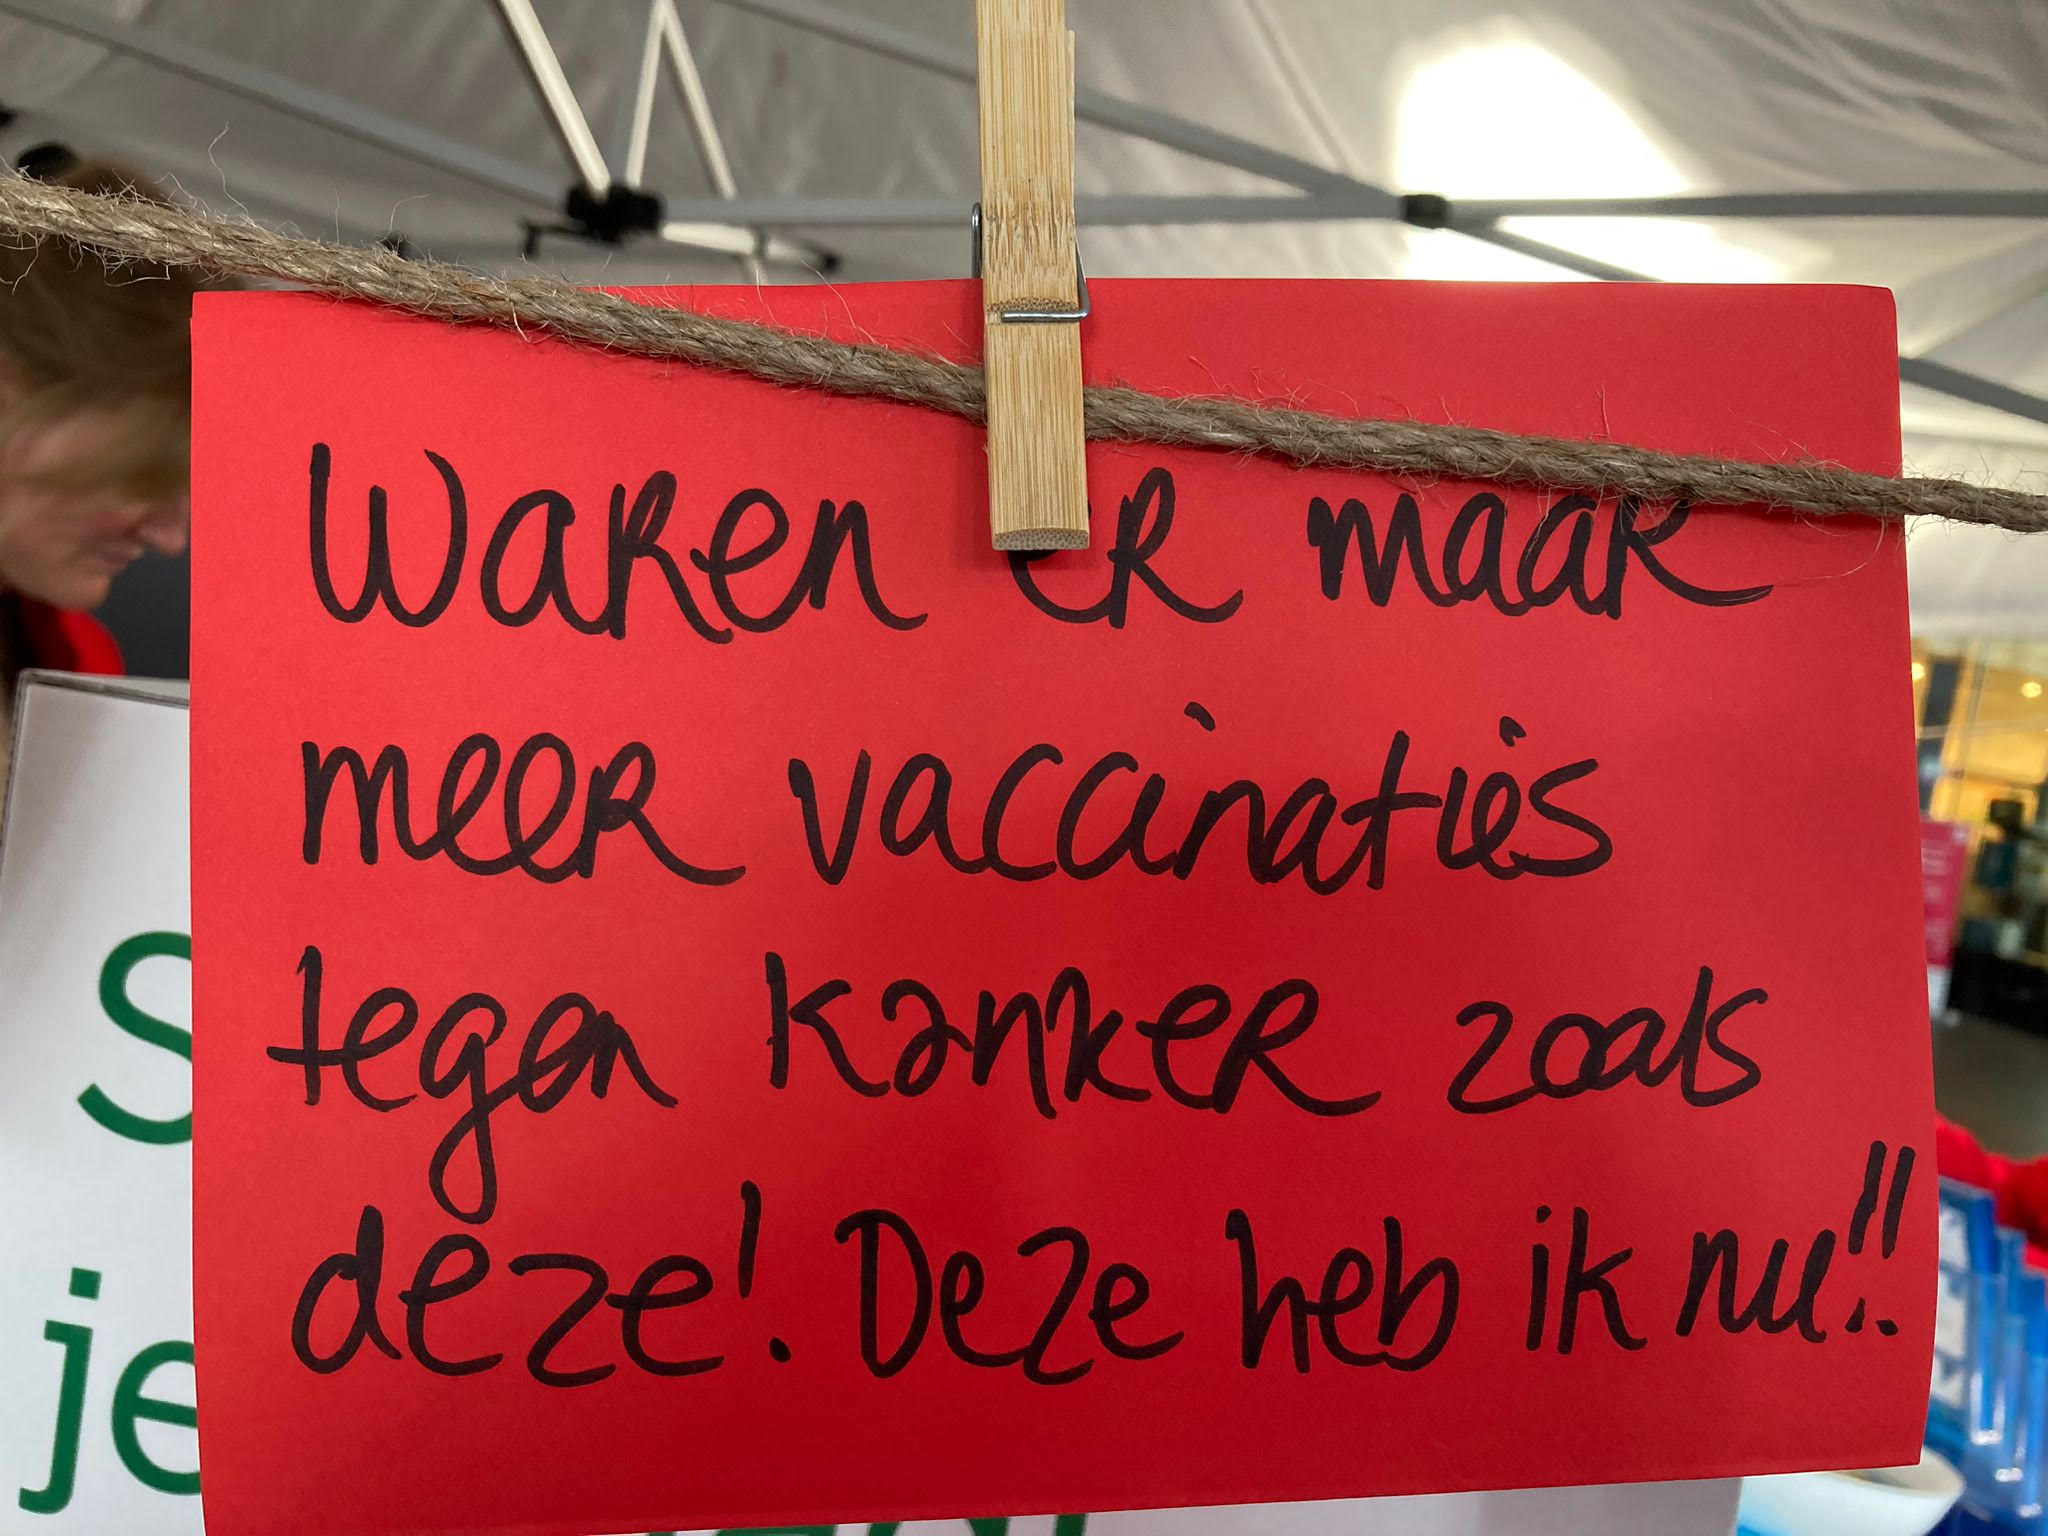 Waren er maar
meer vaccinaties
tegen kanker zoals
deze! Deze heb ik nu!!
S
je